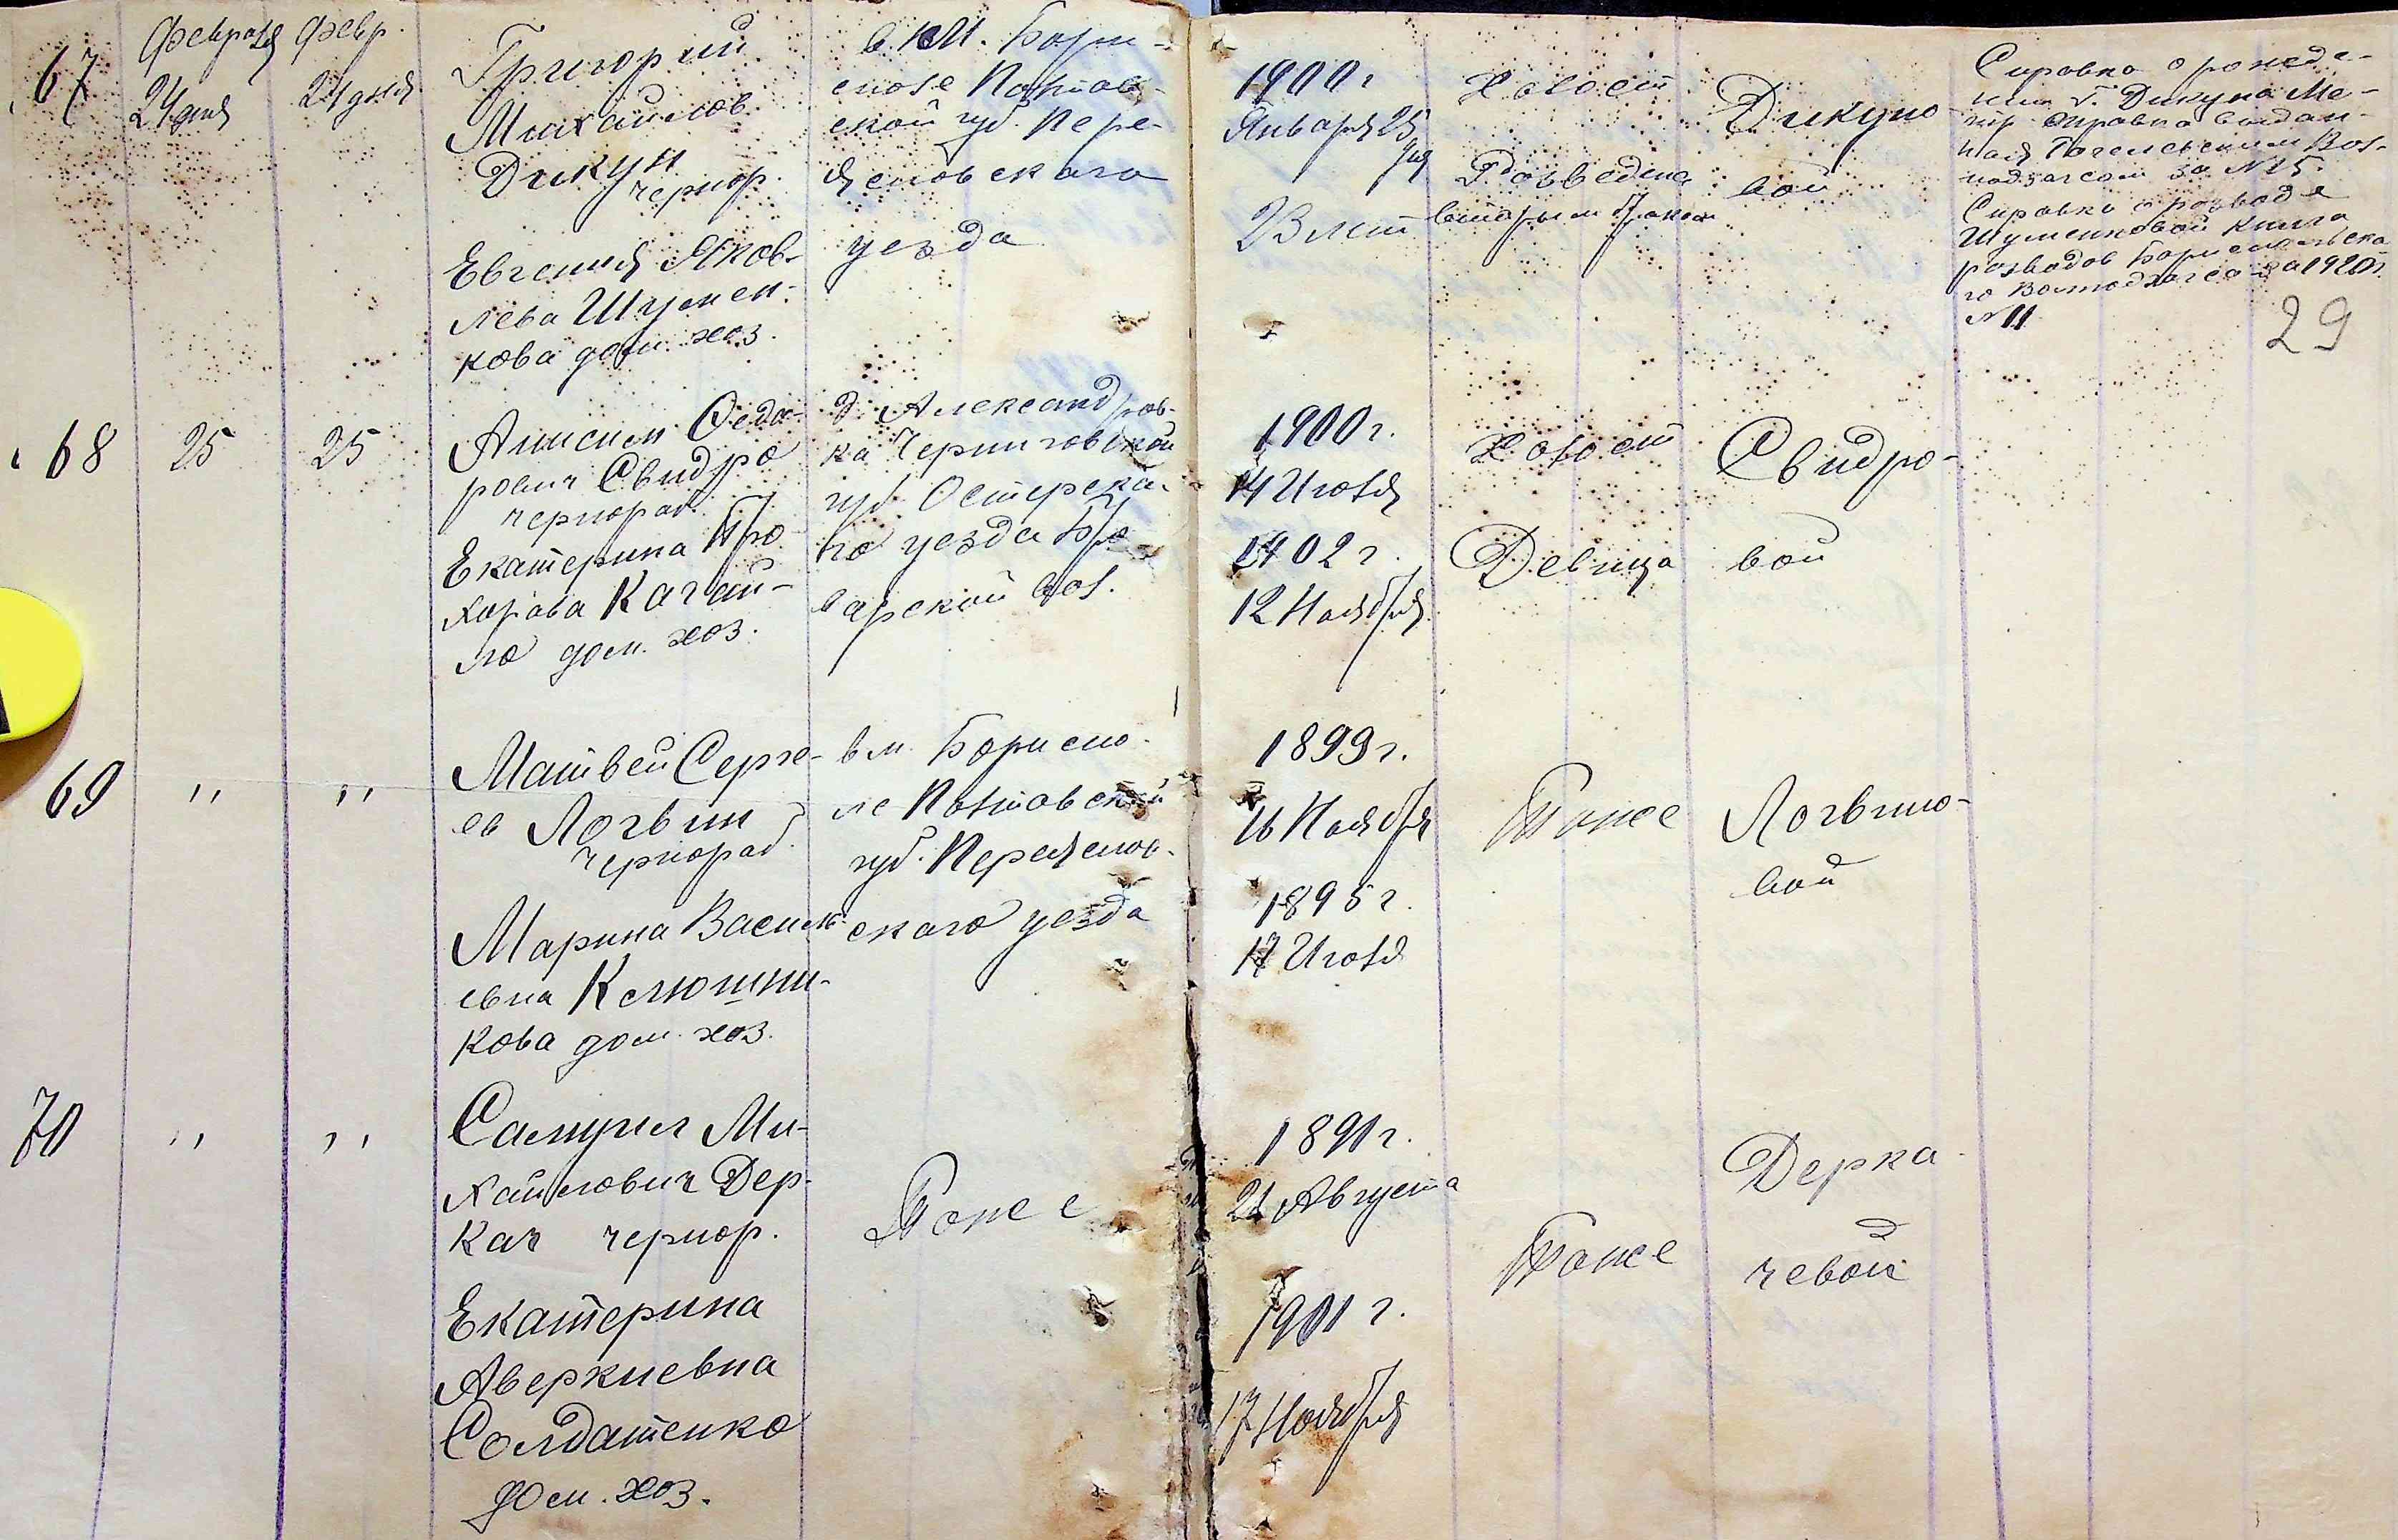 67
Февраля
24 дня
Февр.
24 дня
Григорий
Михайлов
Дикун
чернор.
Евгения Яков-
лева Шумен-
кова дом. хоз.
в М. Бори-
споле Полтав-
ской губ. Пере-
яславскаго
уезда
1900 г
Января 25
дня
23 лет
Холост
Розведена
вторым браком
Дикуно-
вой
Справка о рожде-
нии Г. Дикуна Ме-
справка выдан-
ная
за № 25.
Справка о розводе
Шуменковой Книга
розводов Бориспольска-
го за 1920 г.
№ 11
29
68
25
25
Анисим Федо-
рович Свидро
чернораб.
Екатерина Про-
хорова Качай-
ло дом. хоз.
д. Александров-
ка Черниговской
губ. Остерска-
го уезда Бро-
варской вол.
1900 г.
14 Июля
1902 г.
12 Ноября
Холост
Девица
Свидро-
вой
69
"
"
Матвей Серге-
ев Логвин
чернораб.
Марина Василь-
евна Ключни-
кова дом. хоз.
в м. Бориспо-
ле Полтавской
губ. Переяслав-
скаго уезда
1899 г.
16 Ноября
1895 г.
17 Июля
Тоже
Логвино-
вой
70
"
"
Самуил Ми-
хайлович Дер-
кач чернор.
Екатерина
Аверкиевна
Солдатенко
дом. хоз.
Тоже
1891 г.
21 Августа
1901 г.
17 Ноября
Тоже
Дерка-
чевой